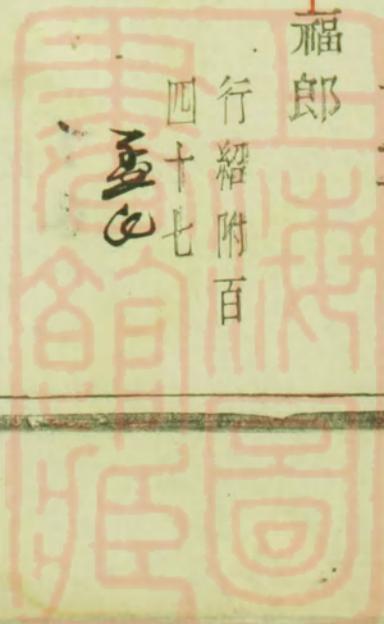 福郎
行紹附百
四十七